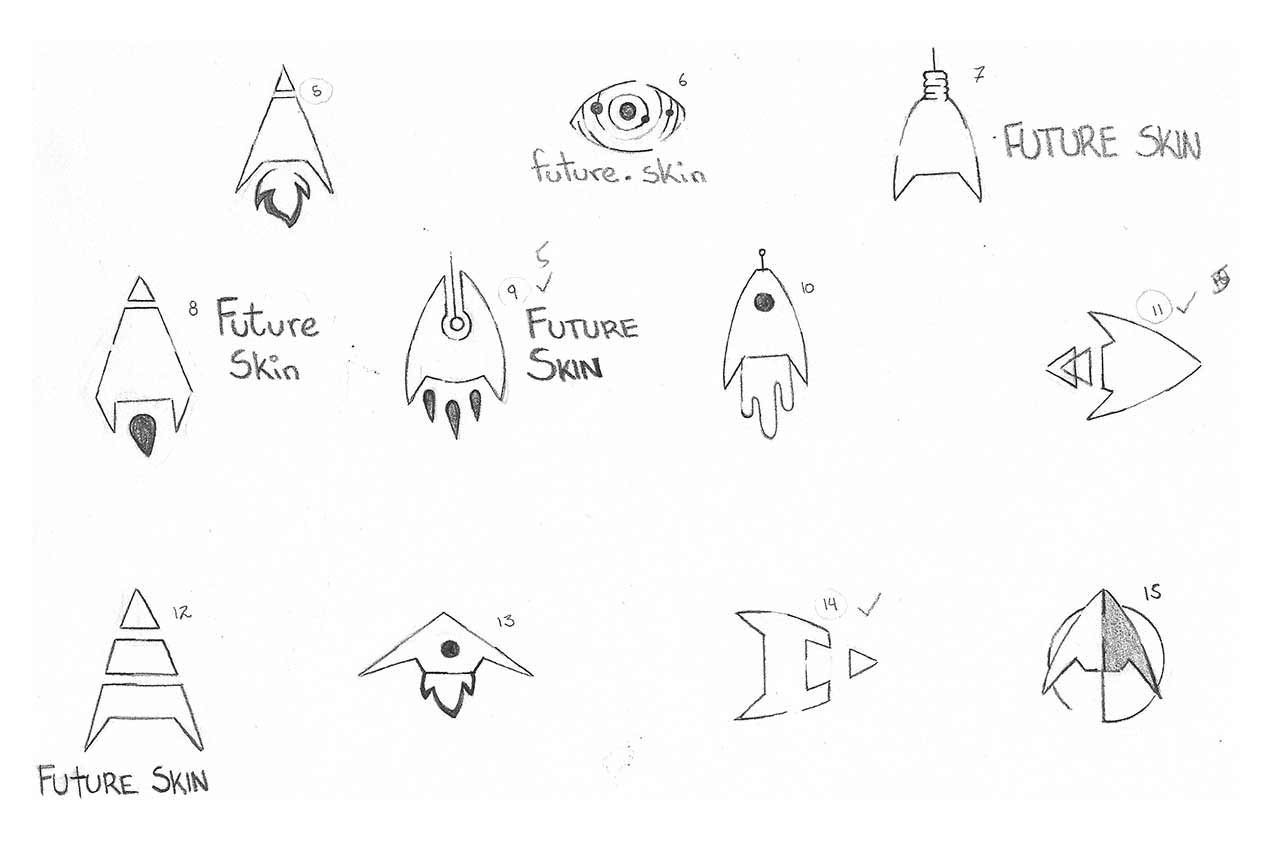 5
6
future. skin
7
FUTURE SKIN
8
Future
Skin
5
9
FUTURE
SKIN
10
11
12
FUTURE SKIN
13
14
15